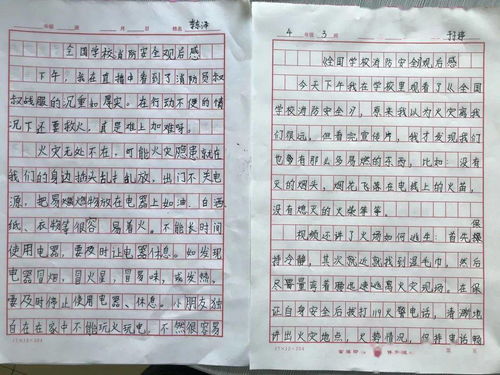 年级 班 月 日 姓名
全国学校消防安全观后感
下午，我在直播中看到了消防员叔
叔战服的沉重如厚实。在行动不便的情
况下还要救火，真是难上加难呀。
火灾无处不在，可能火灾隐患就在
我们的身边插头乱扔乱放，出门不关电
源，把易燃燃物放在电器上如油、白酒、
纸、衣物等很容 易着火。不能长时间
使用电器，要及时让电器休息。如发现
电器冒烟，冒火星，冒易味，或发热。
要及时停止使用电器、休息。小朋友独
自在在家中不能玩火玩电。不然很容易
17×12=204
4 年级 3 班
《全国学校消防安全》观后感
今天下午我在学校里观看了从全国
学校消防安全》，原来我以为火灾离我
们很远。但看完宣传片，我才发现我们
也 有那么多易燃的东西，比如：没有
灭的烟头，烟花飞落在电线上的火苗，
没有熄灭的火柴等等。
视频还讲了火场如何逃生：首先保
持冷静，其次就近就找到湿毛巾。然后
尽量蛮着腰迅速逃离火灾现场。在保
证自身安全后拨打119火警电话，清晰地
讲出火灾地点，火势情况，但打电话畅
17×12=204